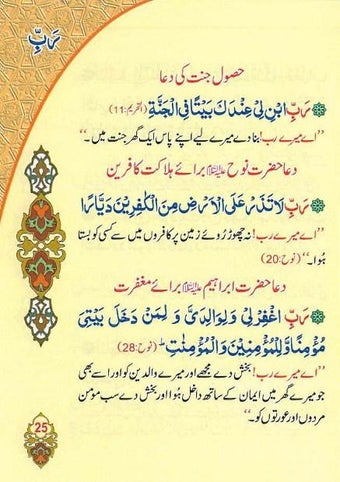 رَبِّ
حصول جنت کی دعا
رَبِّ ابْنِ لِیْ عِنْدَكَ بَیْتًا فِی الْجَنَّةِ (التحریم:11)
”اے میرے رب! بنا دے میرے لیے اپنے پاس ایک گھر جنت میں۔“
دعا حضرت نوح علیہ السلام برائے ہلاکت کافرین
رَبِّ لَا تَذَرْ عَلَى الْاَرْضِ مِنَ الْكٰفِرِیْنَ دَیَّارًا
”اے میرے رب! نہ چھوڑ رُوئے زمین پر کافروں میں سے کسی کو بستا
ہُوا۔“ (نوح:20)
دعا حضرت ابراہیم علیہ السلام برائے مغفرت
رَبِّ اغْفِرْ لِیْ وَ لِوَالِدَیَّ وَ لِمَنْ دَخَلَ بَیْتِیَ
مُؤْمِنًا وَّ لِلْمُؤْمِنِیْنَ وَ الْمُؤْمِنٰتِ ؕ (نوح:28)
”اے میرے رب! بخش دے مجھے اور میرے والدین کو اور اسے بھی
جو میرے گھر میں ایمان کے ساتھ داخل ہُوا اور بخش دے سب مومن
مردوں اور عورتوں کو۔“
25